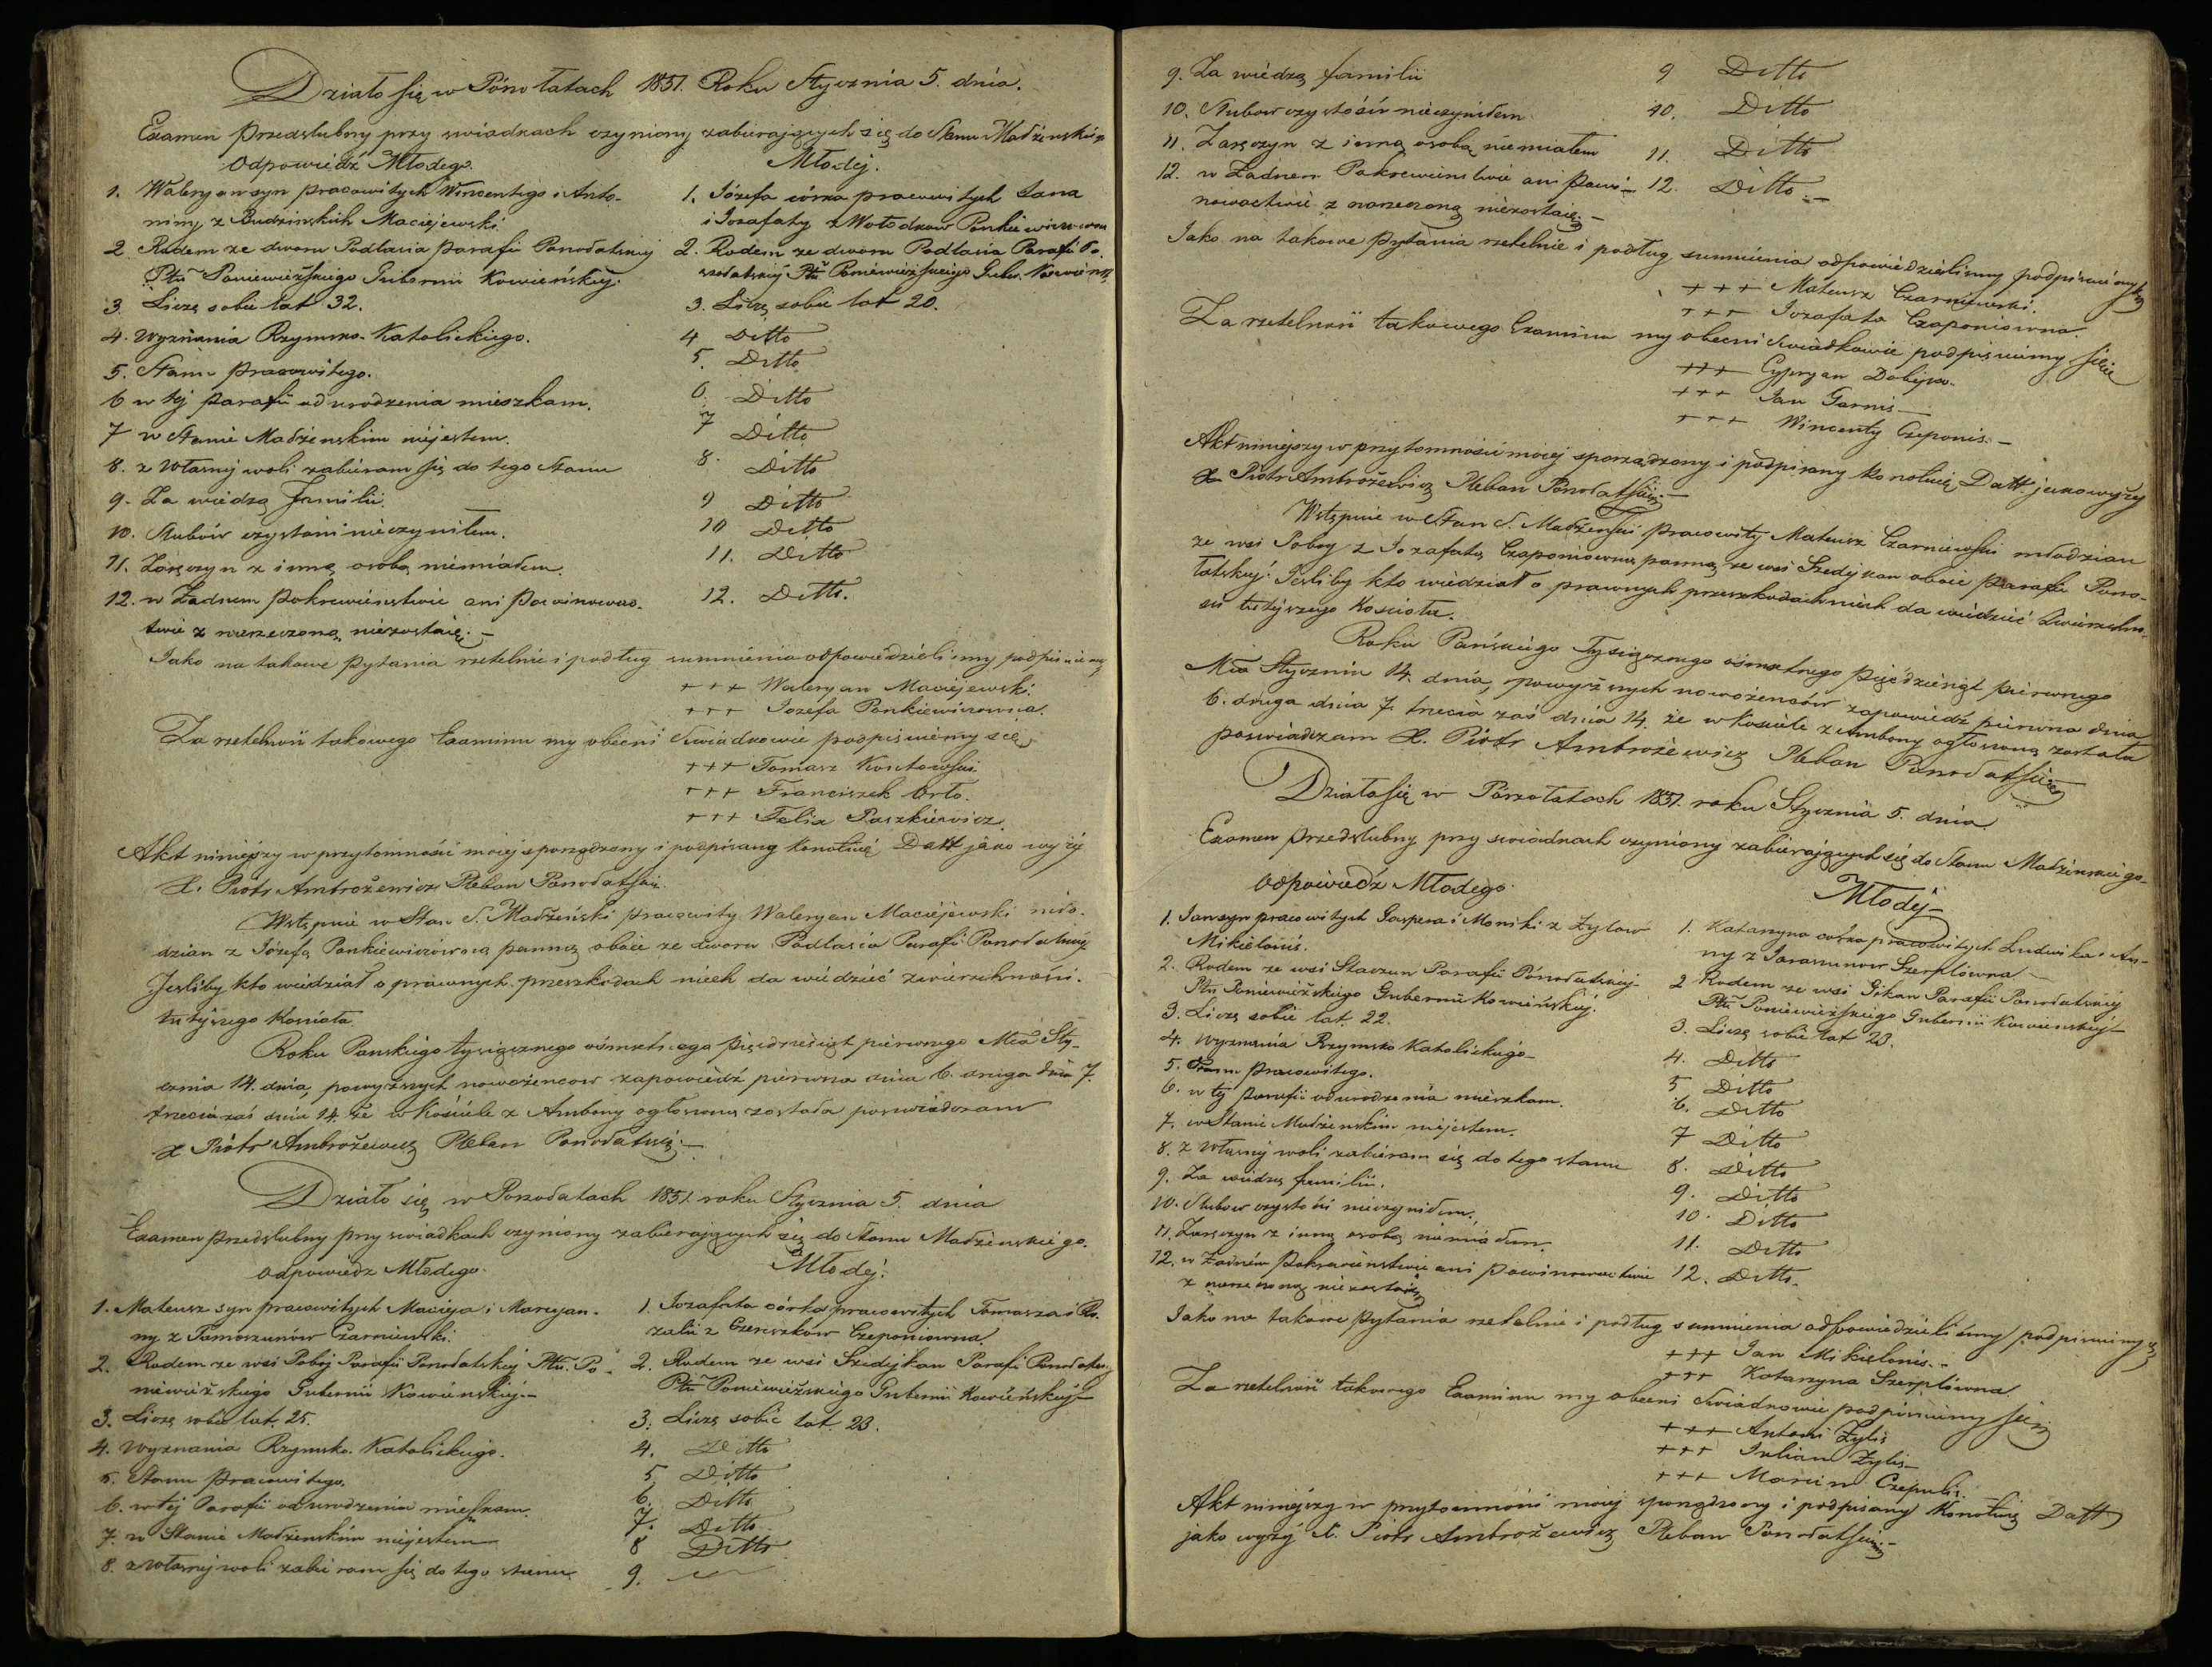 Działo się w Pónołatach 1851. Roku Stycznia 5. dnia.
Examen przedslubny przy swiadkach czyniony zabierających się do Stanu Małżenskiego
Odpowiedź Młodego. Młodej.
1. Waleryan syn pracowitych Wincentego i Anto-
niny z Budzinskich Maciejewski.
2. Rodem ze dworu Podlasia parafii Ponodatskiej
Ptu Poniewieżskiego Gubernii Kowieńskiej.
3. Liczę sobie lat 32.
4. Wyznania Rzymsko-Katolickiego.
5. Stanu pracowitego.
6 w tej parafii od urodzenia mieszkam.
7 w Stanie Małżenskim niejestem.
8. z własnej woli zabieram się do tego stanu
9. Za wiedzą familii.
10. Slubów czystości nieczyniłem.
11. Zaręczyn z inną osobą niemiałem.
12. w Żadnem pokrewieństwie ani powinowac-
twie z narzeczoną niezostaię. -
1. Józefa córka pracowitych Jana
i Jozafaty z Wołodkow Ponkiewiczowna
2. Rodem ze dworu Podlasia Parafii Po-
Ptu Poniewieżskiego Gub. Kowieńs.
3. Liczę sobie lat 20.
4 Ditto
5. Ditto
6. Ditto
7 Ditto
8. Ditto
9 Ditto
10 Ditto
11. Ditto
12. Ditto.
Jako na takowe pytania rzetelnie i podług summienia odpowiedzielismy podpisuiemy
+++ Waleryan Maciejewski.
+++ Jozefa Ponkiewiczowna.
Za rzetelność takowego Examinu my obecni Swiadkowie podpisuiemy się
+++ Tomasz
+++ Franciszek Orło.
+++ Felix Paszkiewicz.
Akt niniejszy w przytomności moiej sporządzony i podpisany konotuię Datt jako wyżej
X. Piotr Ambrożewicz Pleban
Wstępuie w Stan S. Małżeński pracowity Waleryan Maciejewski mło-
dzian z Józefą Ponkiewiczówną panną oboie ze dworu Podlasia Parafii
Jesliby kto wiedział o prawnych przeszkodach niech da wiedzieć zwierzchności.
tutejszego Koscioła.
Roku Panskiego tysiącznego ośmsetnego pięćdziesiąt pierwszego Mca Sty-
cznia 14. dnia, powyższych nowożencow zapowiedź pierwsza dnia 6. druga dnia 7.
trzecia zaś dnia 14. że w Kościele z Ambony ogłoszoną została poswiadczam
X Piotr Ambrożewicz Pleban
Działo się w 1851. roku Stycznia 5. dnia
Examen przedslubny przy swiadkach czyniony zabierających się do Stanu Małżenskiego.
Odpowiedz Młodego. Młodej.
1. Mateusz syn pracowitych Macieja i Maryan-
ny z Tamoszunów Czarniewski.
2. Rodem ze wsi Poboj Parafii Ponodatskiej Ptu. Po-
niewieżskiego Gubernii Kowienskiej. -
3. Liczę sobie lat. 25.
4. Wyznania Rzymsko. Katolickiego.
5. Stanu pracowitego.
6. w tej Parafii od urodzenia mieszkam.
7. w Stanie Małżenskim niejestem
8. z własnej woli zabieram się do tego stanu
1. Jozafata córka pracowitych Tomasza i Ro-
zalii z Czeponiowna
2. Rodem ze wsi Szedejkan Parafii
Ptu Poniewieżskiego Gubernii Kowieńskiej
3. Liczę sobie lat. 23.
4. Ditto
5. Ditto
6. Ditto
7. Ditto
8 Ditto
9.
9. Za wiedzą familii 9 Ditto
10. Slubow czystości nieczyniłem 10. Ditto
11. Zaręczyn z inną osobą niemiałem 11. Ditto
12. w Żadnem Pokrewienstwie ani powi- 12. Ditto. -
nowactwie z narzeczoną niezostaię. -
Jako na takowe pytania rzetelnie i podług summienia odpowiedzielismy podpisuiemy się
+++ Mateusz Czarniewski.
+++ Jozafata Czaponiowna.
Za rzetelność takowego Examinu my obecni Swiadkowie podpisuiemy się
+++ Cypryan
+++ Jan Garnis -
+++ Wincenty Czeponis. -
Akt niniejszy w przytomności moiej sporządzony i podpisany konotuię Datt. jako wyżej
X Piotr Ambrożewicz Pleban
Wstępuie w Stan S. Małżenski pracowity Mateusz Czarniewski młodzian
ze wsi Poboy z Jozafatą Czaponiowną panną ze wsi Szedejkan oboie parafii Pono-
łatskiej. Jesliby kto wiedział o prawnych przeszkodach niech da wiedzieć Zwierzchno-
ści tutejszego Koscioła.
Roku Pańskiego Tysiącznego ośmsetnego pięćdziesiąt pierwszego
Mca Stycznia 14. dnia, powyższych nowożencow zapowiedź pierwsza dnia
6. druga dnia 7. trzecia zaś dnia 14. że w kościele z Ambony ogłoszoną została
poswiadczam X. Piotr Ambrożewicz Pleban
Działo się w 1851. roku Stycznia 5. dnia
Examen przedslubny przy swiadkach czyniony zabierających się do Stanu Małżenskiego-
Odpowiedź Młodego. Młodej -
1. Jan syn pracowitych Gaspera i Moniki z Żylow
Mikielonis.
2. Rodem ze wsi Staczun Parafii Pónodatskiej
Ptu Poniewieżskiego Gubernii Kowieńskiej.
3. Liczę sobie lat. 22.
4. Wyznania Rzymsko Katolickiego -
5. Stanu pracowitego.
6. w tej parafii od urodzenia mieszkam.
7. w Stanie Małżenskim niejestem.
8. z własnej woli zabieram się do tego stanu
9. Za wiedzą familii.
10. Slubow czystości nieczyniłem.
11. Zaręczyn z inną osobą niemiałem.
12. w Żadnem pokrewieństwie ani powinowactwie
z narzeczoną niezostaię
1. Katarzyna córka pracowitych Ludwika i An-
ny z Szerplówna -
2 Rodem ze wsi Gikan Parafii Ponodatskiej
Ptu Poniewieżskiego Gubernii Kowienskiej
3. Liczę sobie lat 23.
4. Ditto
5 Ditto
6. Ditto
7 Ditto
8. Ditto
9. Ditto
10. Ditto
11. Ditto
12. Ditto.
Jako na takowe pytania rzetelnie i podług summienia odpowiedzieliśmy podpisuiemy się
+++ Jan Mikielonis. -
+++ Katarzyna Szerplówna
Za rzetelność takowego Examinu my obecni Swiadkowie podpisuiemy się
+++ Antoni Żylis
+++ Julian Żylis -
+++ Marcin Czepulis. -
Akt niniejszy w przytomności moiej sporządzony i podpisany Konotuię Datt
jako wyżej X. Piotr Ambrożewicz Pleban